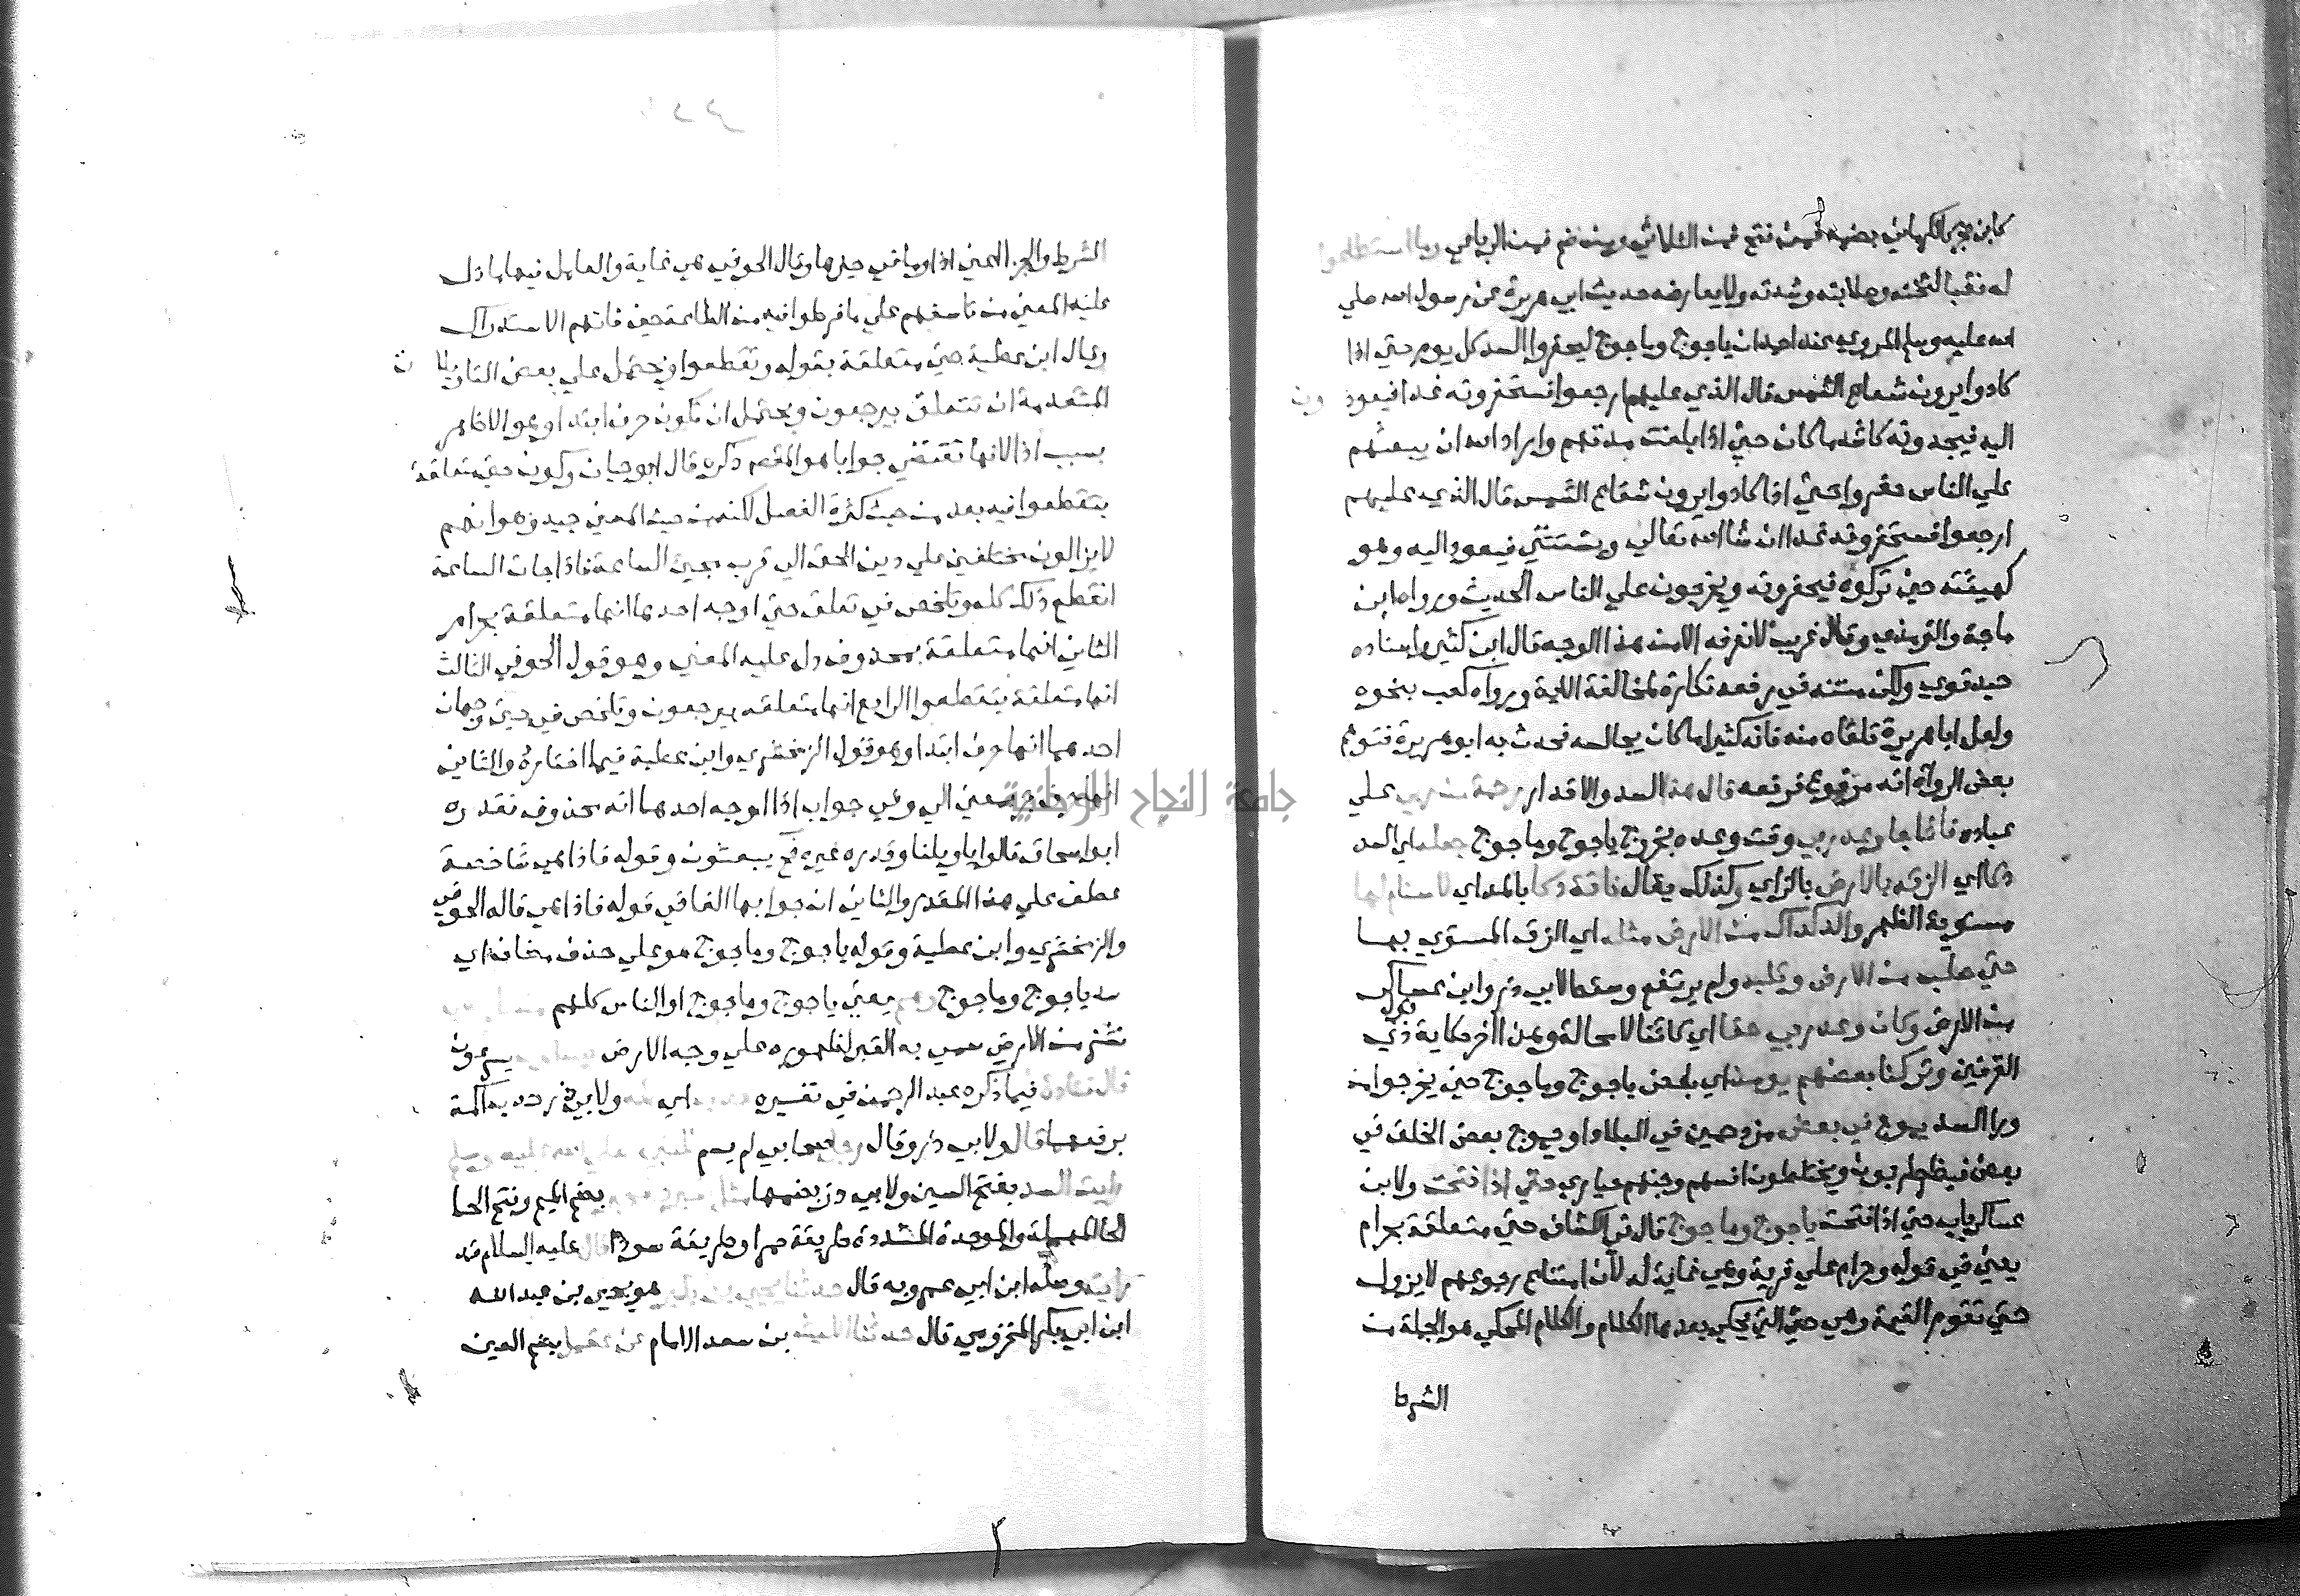 كابن حجر الكرماني بضمه فمن فتح فمن الثلاثي ومن ضم فمن الرباعي وما استطاعوا
له نقبا لثخنه وصلابته وشدته ولا يعارضه حديث ابي هريرة عن رسول الله صلي
الله عليه وسلم المروي عند احمد ان ياجوج وماجوج ليحفروا السد كل يوم حتي اذا
كادوا يرون شعاع الشمس قال الذي عليهم ارجعوا فستحفرونه غدا فيعودون
اليه فيجدونه كاشد ما كان حتي اذا بلغت مدتهم واراد الله ان يبعثهم
علي الناس حفروا حتي اذا كادوا يرون شعاع الشمس قال الذي عليهم
ارجعوا فستحفرونه غدا ان شا الله تعالي ويستثني فيعود اليه وهو
كهيئته حين تركوه فيحفرونه ويخرجون علي الناس الحديث ورواه ابن
ماجة والترمذي وقال غريب لا نعرفه الا من هذا الوجه قال ابن كثير واسناده
جيد قوي ولكن متنه في رفعه نكارة لمخالفة الاية ورواه كعب بنحوه
ولعل ابا هريرة تلقاه منه فانه كثيرا ما كان يجالسه فحدث به ابو هريرة فتوهم
بعض الرواة انه مرفوع فرفعه قال هذا السد والاقدار رحمة من ربي علي
عباده فاذا جا وعد ربي وقت وعده بخروج ياجوج وماجوج جعله اي السد
دكا اي الزقه بالارض بالزاي وكذلك يقال ناقة دكا بالمد اي لا سنام لها
مستوية الظهر والدكداك من الارض مثله اي الزقه المستوي بها
حتي صلب من الارض وتلبد ولم يرتفع وسقط لابي ذر وابن عساكر
من الارض وكان وعد ربي حقا اي كائنا لا محالة وهذا اخر حكاية قول ذي
القرنين وتركنا بعضهم يومئذ اي بعض ياجوج وماجوج حين يخرجوا من
ورا السد يموج في بعض مزدحمين في البلاد او يموج بعض الخلف في
بعض فيضطربون ويختلطون انسهم وجنهم حياري حتي اذا فتحت ولابن
عساكر باب حتي اذا فتحت ياجوج وماجوج قال في الكشاف حتي متعلقة بحرام
يعني في قوله وحرام علي قرية وهي غاية له لان امتناع رجوعهم لا يزول
حتي تقوم القيمة وهي حتي التي يحكي بعدها الكلام والكلام المحكي هو الجملة من
الشرط
الشرط والجزا اعني اذا وما في حيزها وقال الحوفي هي غاية والعامل فيها ما دل
عليه المعني من تاسفهم علي ما فرطوا فيه من الطاعة حين فاتهم الاستدراك
وقال ابن عطية حتي متعلقة بقوله وتقطعوا ويحتمل علي بعض التاويلات
المتقدمة ان تتعلق بيرجعون ويحتمل ان تكون حرف ابتدا وهو الاظهر
بسبب اذا لانها تقتضي جوابا هو المقصود ذكره قال ابو حيان وكون حتي متعلقة
بتقطعوا فيه بعد من حيث كثرة الفصل لكنه من حيث المعني جيد وهو انهم
لا يزالون مختلفين علي دين الحق الي قرب مجيئ الساعة فاذا جات الساعة
انقطع ذلك كله وتلخص في تعلق حتي اوجه احدها انها متعلقة بحرام
الثاني انها متعلقة بمحذوف دل عليه المعني وهو قول الحوفي الثالث
انها متعلقة بتقطعوا الرابع انها متعلقه بيرجعون وتلخص في حتي وجهان
احدهما انها حرف ابتدا وهو قول الزمخشري وابن عطية فيما اختاره والثاني
انها حرف جر بمعني الي وفي جواب اذا اوجه احدها انه محذوف فقدره
ابو اسحاق قالوا يا ويلنا وقدره غيره فح يبعثون وقوله فاذا هي شاخصة
عطف علي هذا المقدر والثاني ان جوابها الفا في قوله فاذا هي قاله الحوفي
والزمخشري وابن عطية وقوله ياجوج وماجوج هو علي حذف مضاف اي
سد ياجوج وماجوج وهم يعني ياجوج وماجوج او الناس كلهم من كل حدب
نشز من الارض سمي به القبر لظهوره علي وجه الارض ينسلون يسرعون
قال قتادة فيما ذكره عبد الرحمن في تفسيره حدب اي اكمة ولابي ذر حدب اكمة
برفعهما قال ولابي ذر وقال رجل صحابي لم يسم للنبي صلي الله عليه وسلم
رايت السد بفتح السين ولابي ذر بضمها مثل البرد المحبر بضم الميم وفتح الحا
الحا المهملة والموحدة المشددة طريقة حمرا وطريقة سودا قال عليه السلام قد
رايته وصله ابن ابي عمر وبه قال حدثنا يحيي بن بكير هو يحيي بن عبد الله
ابن ابي بكر المخزومي قال حدثنا الليث بن سعد الامام عن عقيل بضم العين
جامعة النجاح الوطنية